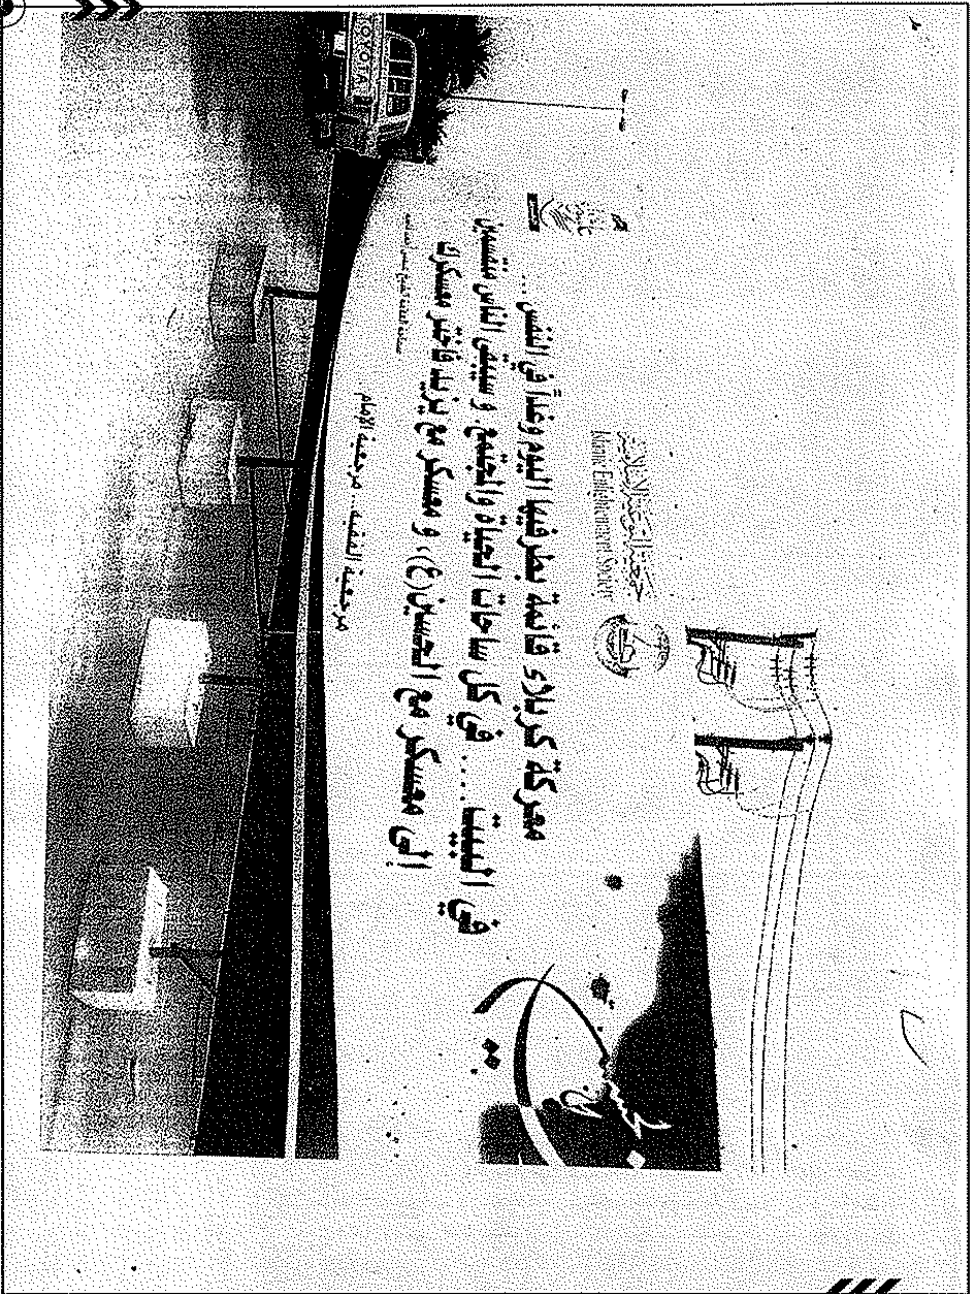 جمعية التوعية الإسلامية
Islamic Enlightenment Society
معركة كربلاء قائمة بطرفيها اليوم وغداً في النفس ...
في البيت .... في كل ساحات الحياة والمجتمع و سيبقى الناس منقسمين
إلى معسكر مع الحسين(ع)، و معسكر مع يزيد فاختر معسكرك
مرجعية الفقيه .. مرجعية الإمام
TOYOTA